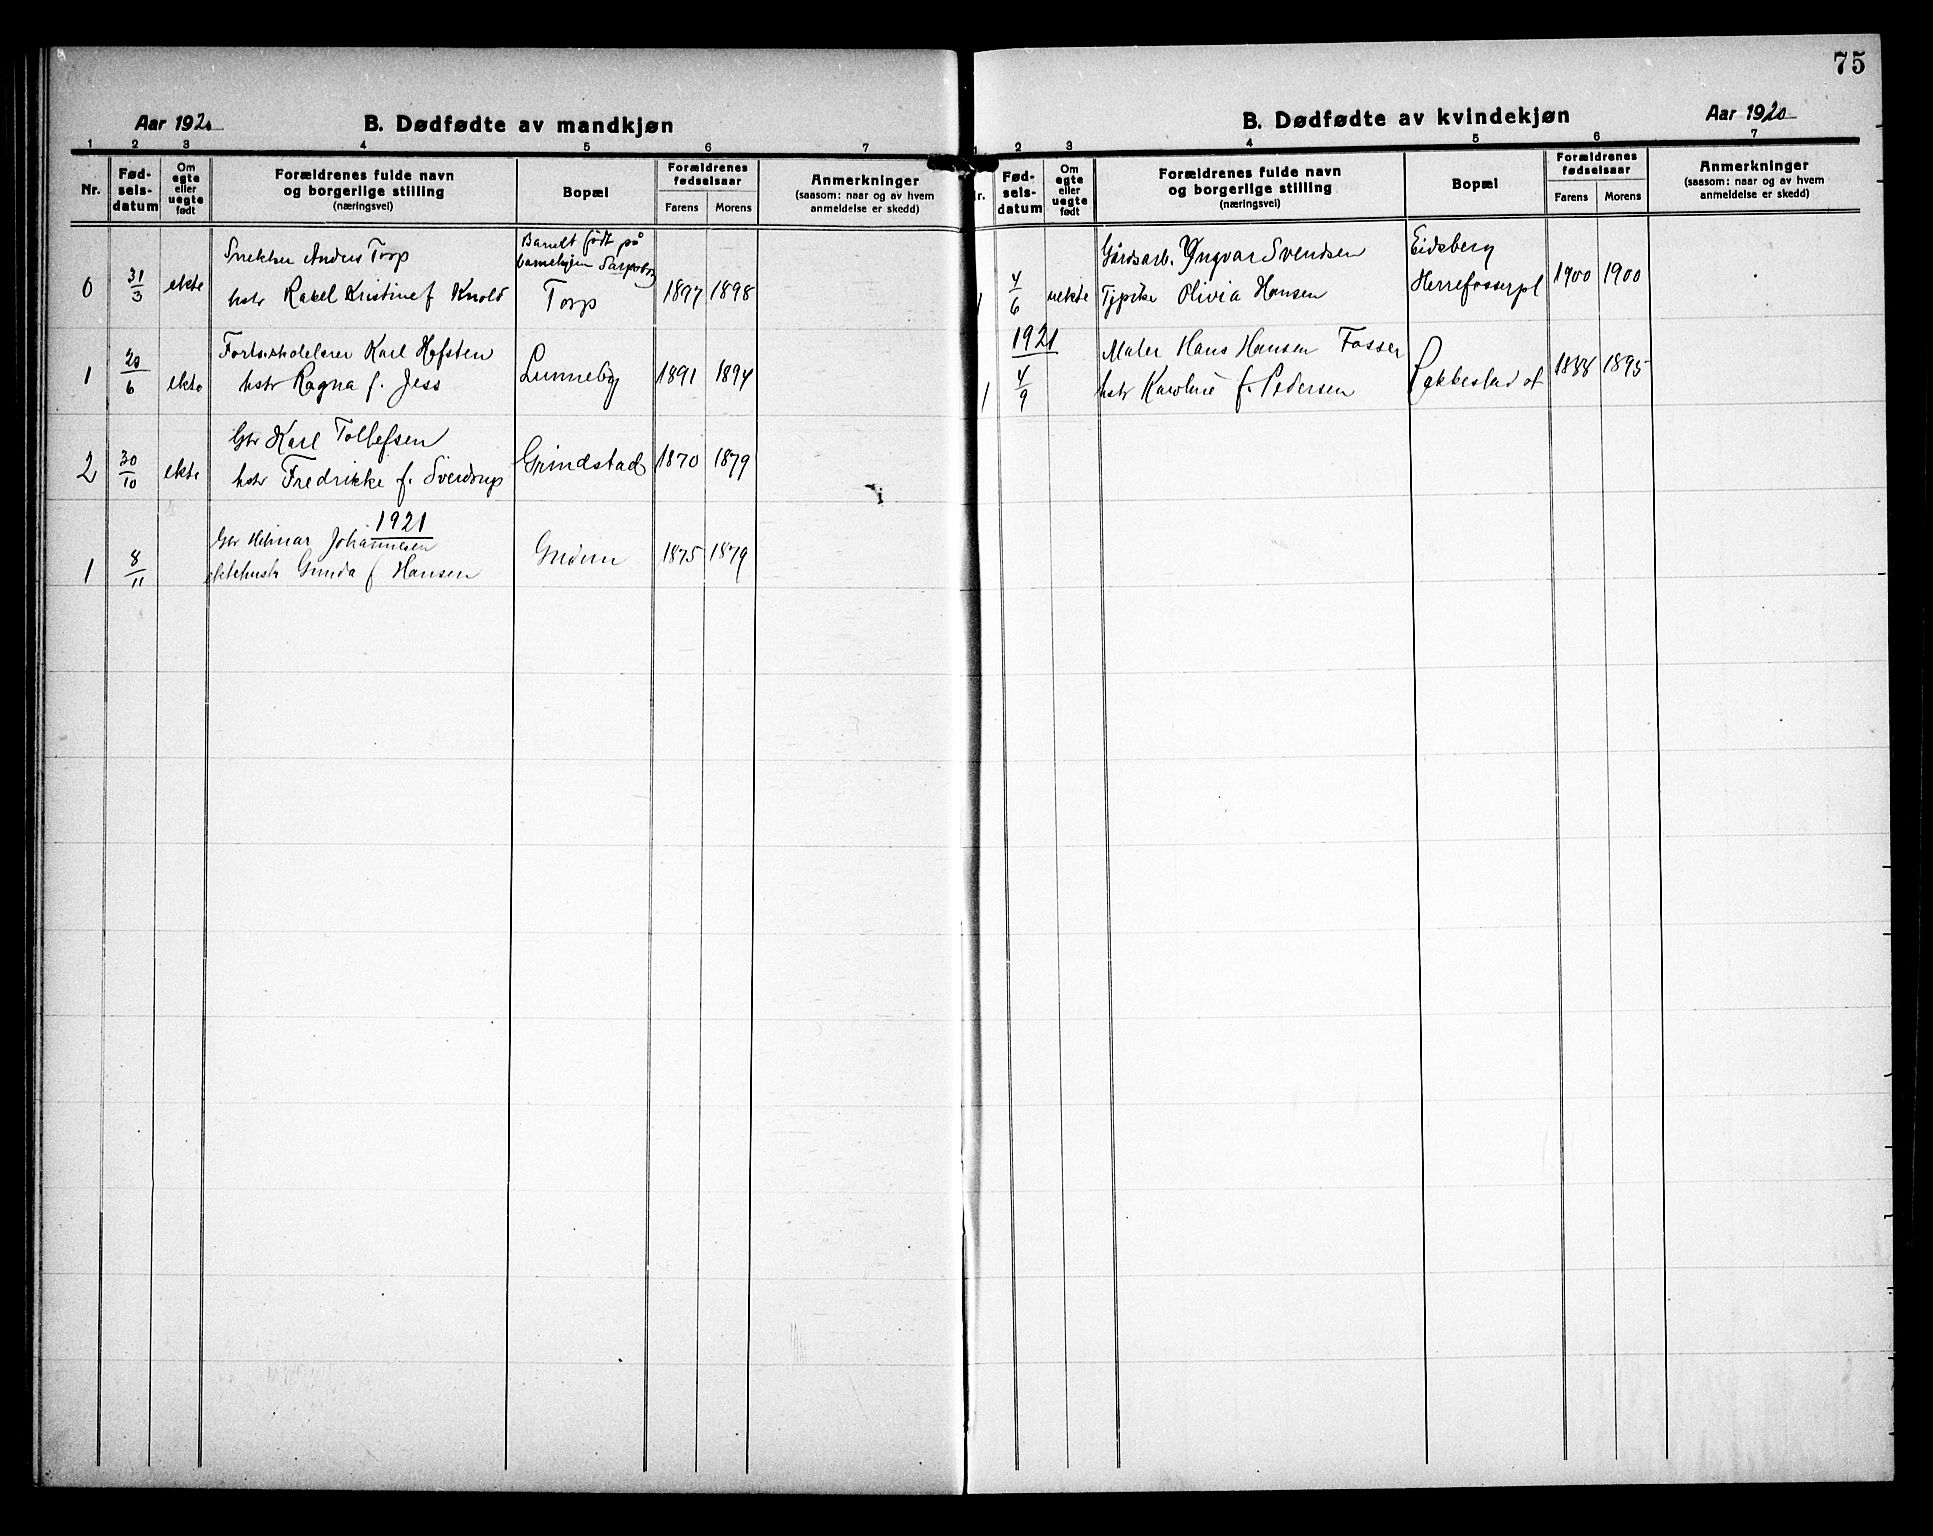 75
Aar 1920
B. Dødfødte av mandkjøn
1 2 3 4 5 6 7
Nr.
Fød-
sels-
datum
Om
egte
eller
uegte
født
Forældrenes fulde navn
og borgerlige stilling
(næringsvei)
Bopæl
Forældrenes
fødselsaar
Farens Morens
Anmerkninger
(saasom: naar og av hvem
anmeldelse er skedd)
Snekker Anders Torp
Barnet født på
Sarpsborg
0 31/3 ekte hstr Rakel Kristine f Knold Torp 1897 1898
Karl Hofsten
1 20/6 ekte hstr Ragna f. Jess Lunneby 1891 1894
Gbr Karl Tollefsen
2 30/10 ekte hstr Fredrikke f. Sverdrup Grindstad 1870 1879
1921
Gbr Hilmar Johannesen
1 8/11 ektehustr Gunda f Hansen Gudim 1875 1879
B. Dødfødte av kvindekjøn
Aar 1920
1 2 3 4 5 6 7
Nr.
Fød-
sels-
datum
Om
egte
eller
uegte
født
Forældrenes fulde navn
og borgerlige stilling
(næringsvei)
Bopæl
Forældrenes
fødselsaar
Farens Morens
Anmerkninger
(saasom: naar og av hvem
anmeldelse er skedd)
Gårdsarb. Yngvar Svendsen Eidsberg
1 4/6 uekte Tjpike Olivia Hansen Herrefosserpl 1900 1900
1921
Maler Hans Hansen Fosser
1 4/9 hstr Karoline f. Pedersen Pakkestad 1888 1895